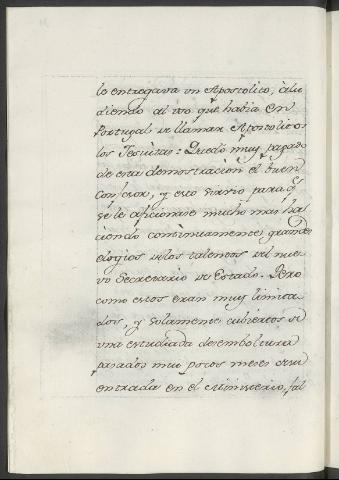 le entregava un Apostolico, alu
diendo al uso que havia en
Portugal de llamar Apostolicos
los Jesuitas: Quedó muy pagado
de esta demostracion el buen
Confesor, y esto sirvio para q.e
se le aficionase mucho mas ha
ciendo continuamente grandes
elogios de los talentos del nue
vo Secretario de Estado. Pero
como estos eran muy limita
dos, y solamente cubiertos de
una estudiada desemboltura
pasados muy pocos meses de su
entrada en el Ministerio, fal